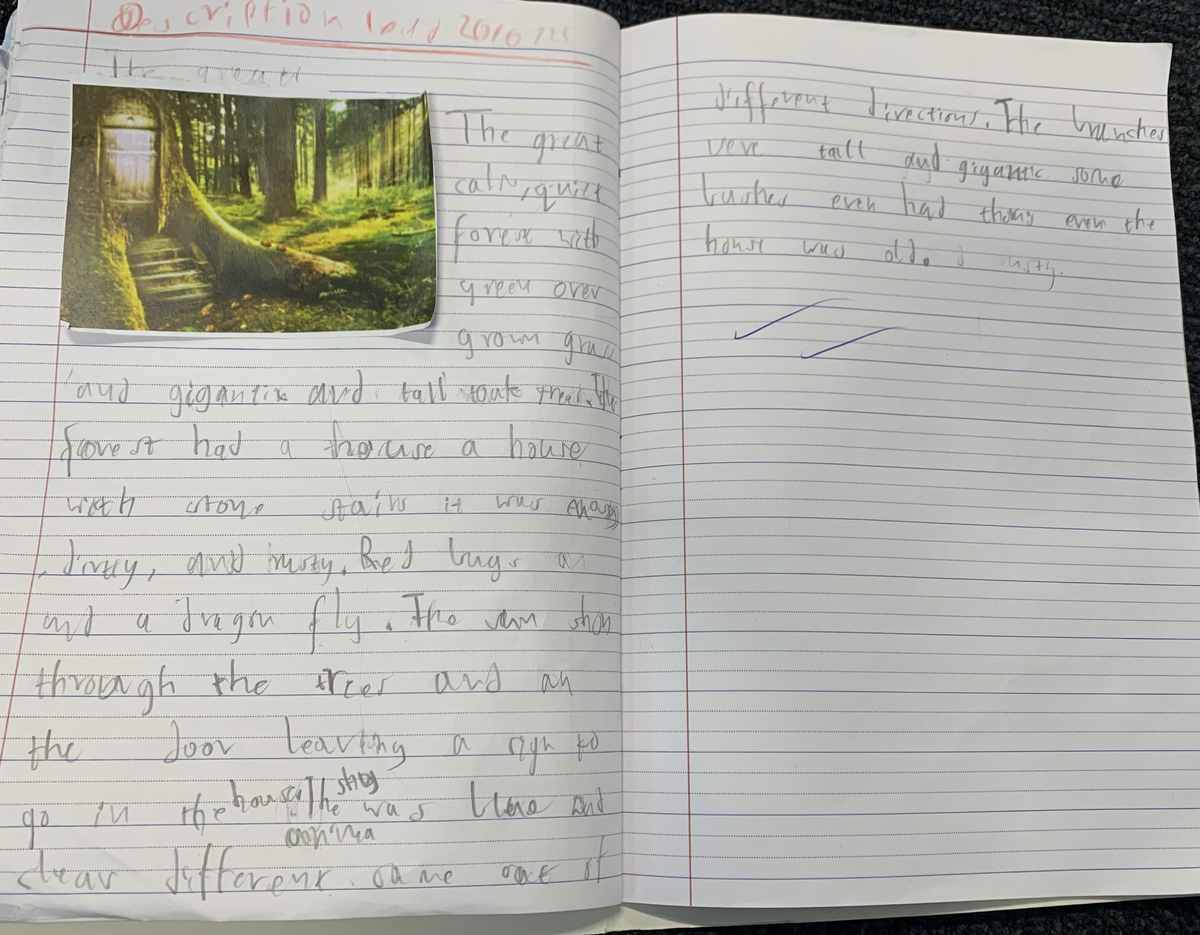 Description
The great
The great
calm, quiit
forest with
green over
grown grass
and gigantix and tall trear. The
foorest had a a house
with stone stairs it was
, dirtty, and rusty. Red bugs an
and a dragon fly. The sun shon
through the trees and an
the door leaving a sign to
go in the house. The sky was blue and
clear different came out of
different directions. The brunches
vere tall and gigantic some
bushes even had thorns even the
house was old. rusty.